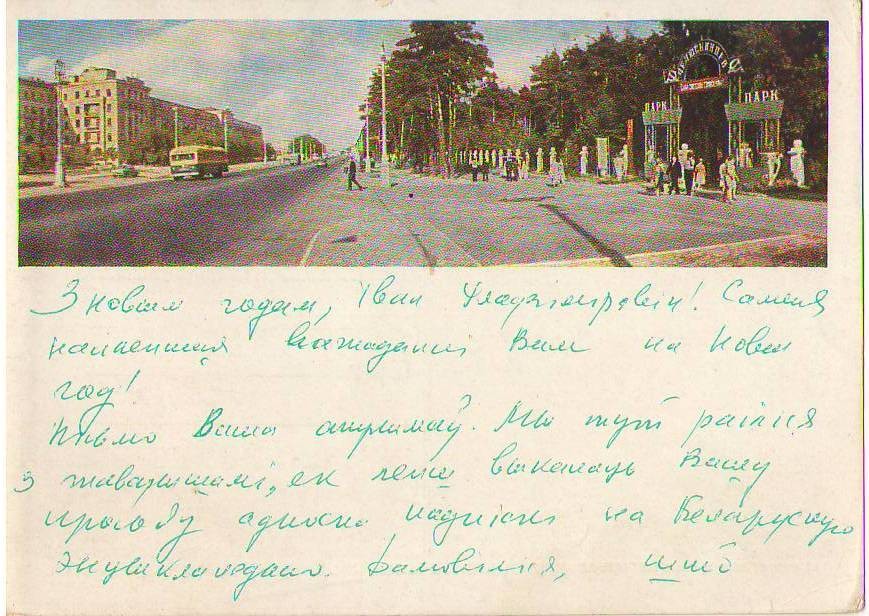 ЧЕЛЮСКИНЦЕВ
ПАРК ПАРК
З новым годам, Іван Уладзіміравіч! Самыя
найлепшыя пажаданні Вам на Новы
год!
Пісьмо Ваша атрымаў. Мы тут раіліся
з таварышамі, як лепш выканаць Вашу
просьбу адносна падпіскі на Беларускую
энцыклапедыю. Дамовіліся, што